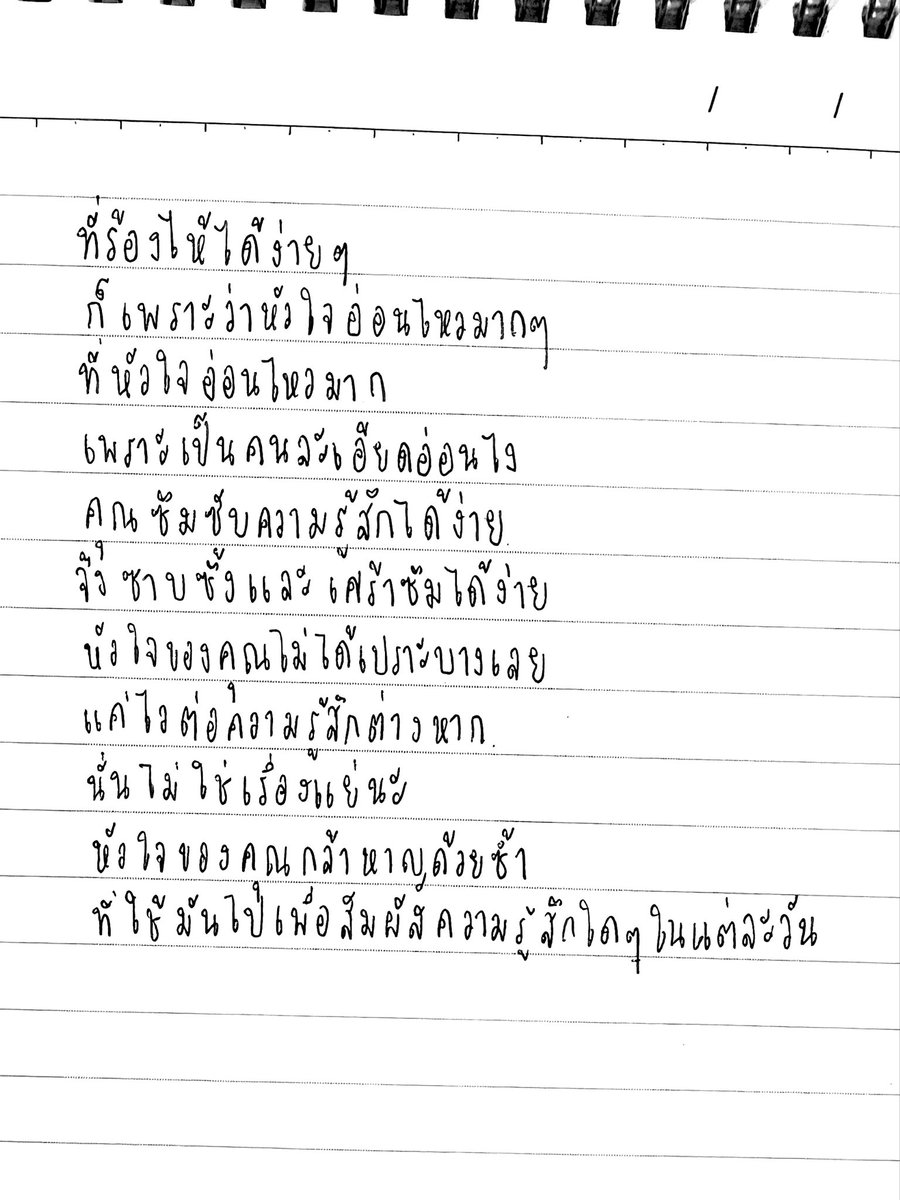 ที่ร้องไห้ได้ง่ายๆ
ก็เพราะว่าหัวใจอ่อนไหวมากๆ
ที่หัวใจอ่อนไหวมาก
เพราะเป็นคนละเอียดอ่อนไง
คุณซึมซับความรู้สึกได้ง่าย
จึงซาบซึ้งและเศร้าซึมได้ง่าย
หัวใจของคุณไม่ได้เปราะบางเลย
แค่ไวต่อความรู้สึกต่างหาก
นั่นไม่ใช่เรื่องแย่นะ
หัวใจของคุณกล้าหาญด้วยซ้ำ
ที่ใช้มันไปเพื่อสัมผัสความรู้สึกใดๆในแต่ละวัน